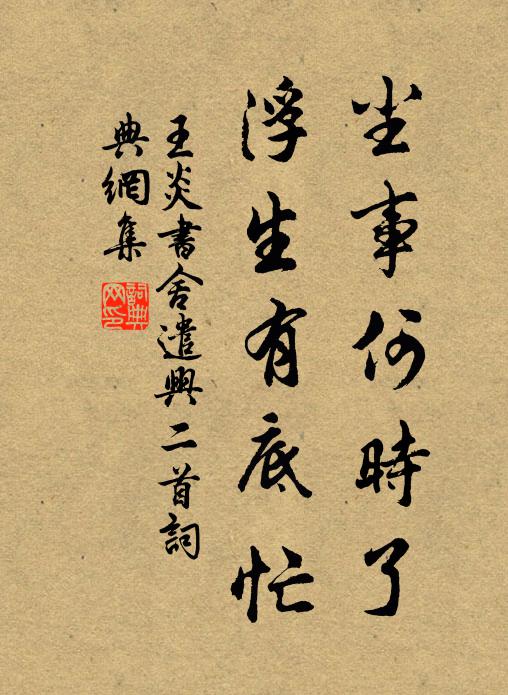 尘事何時了
浮生有底忙
王炎書舍遣興二首詞
典網集
詞典網印